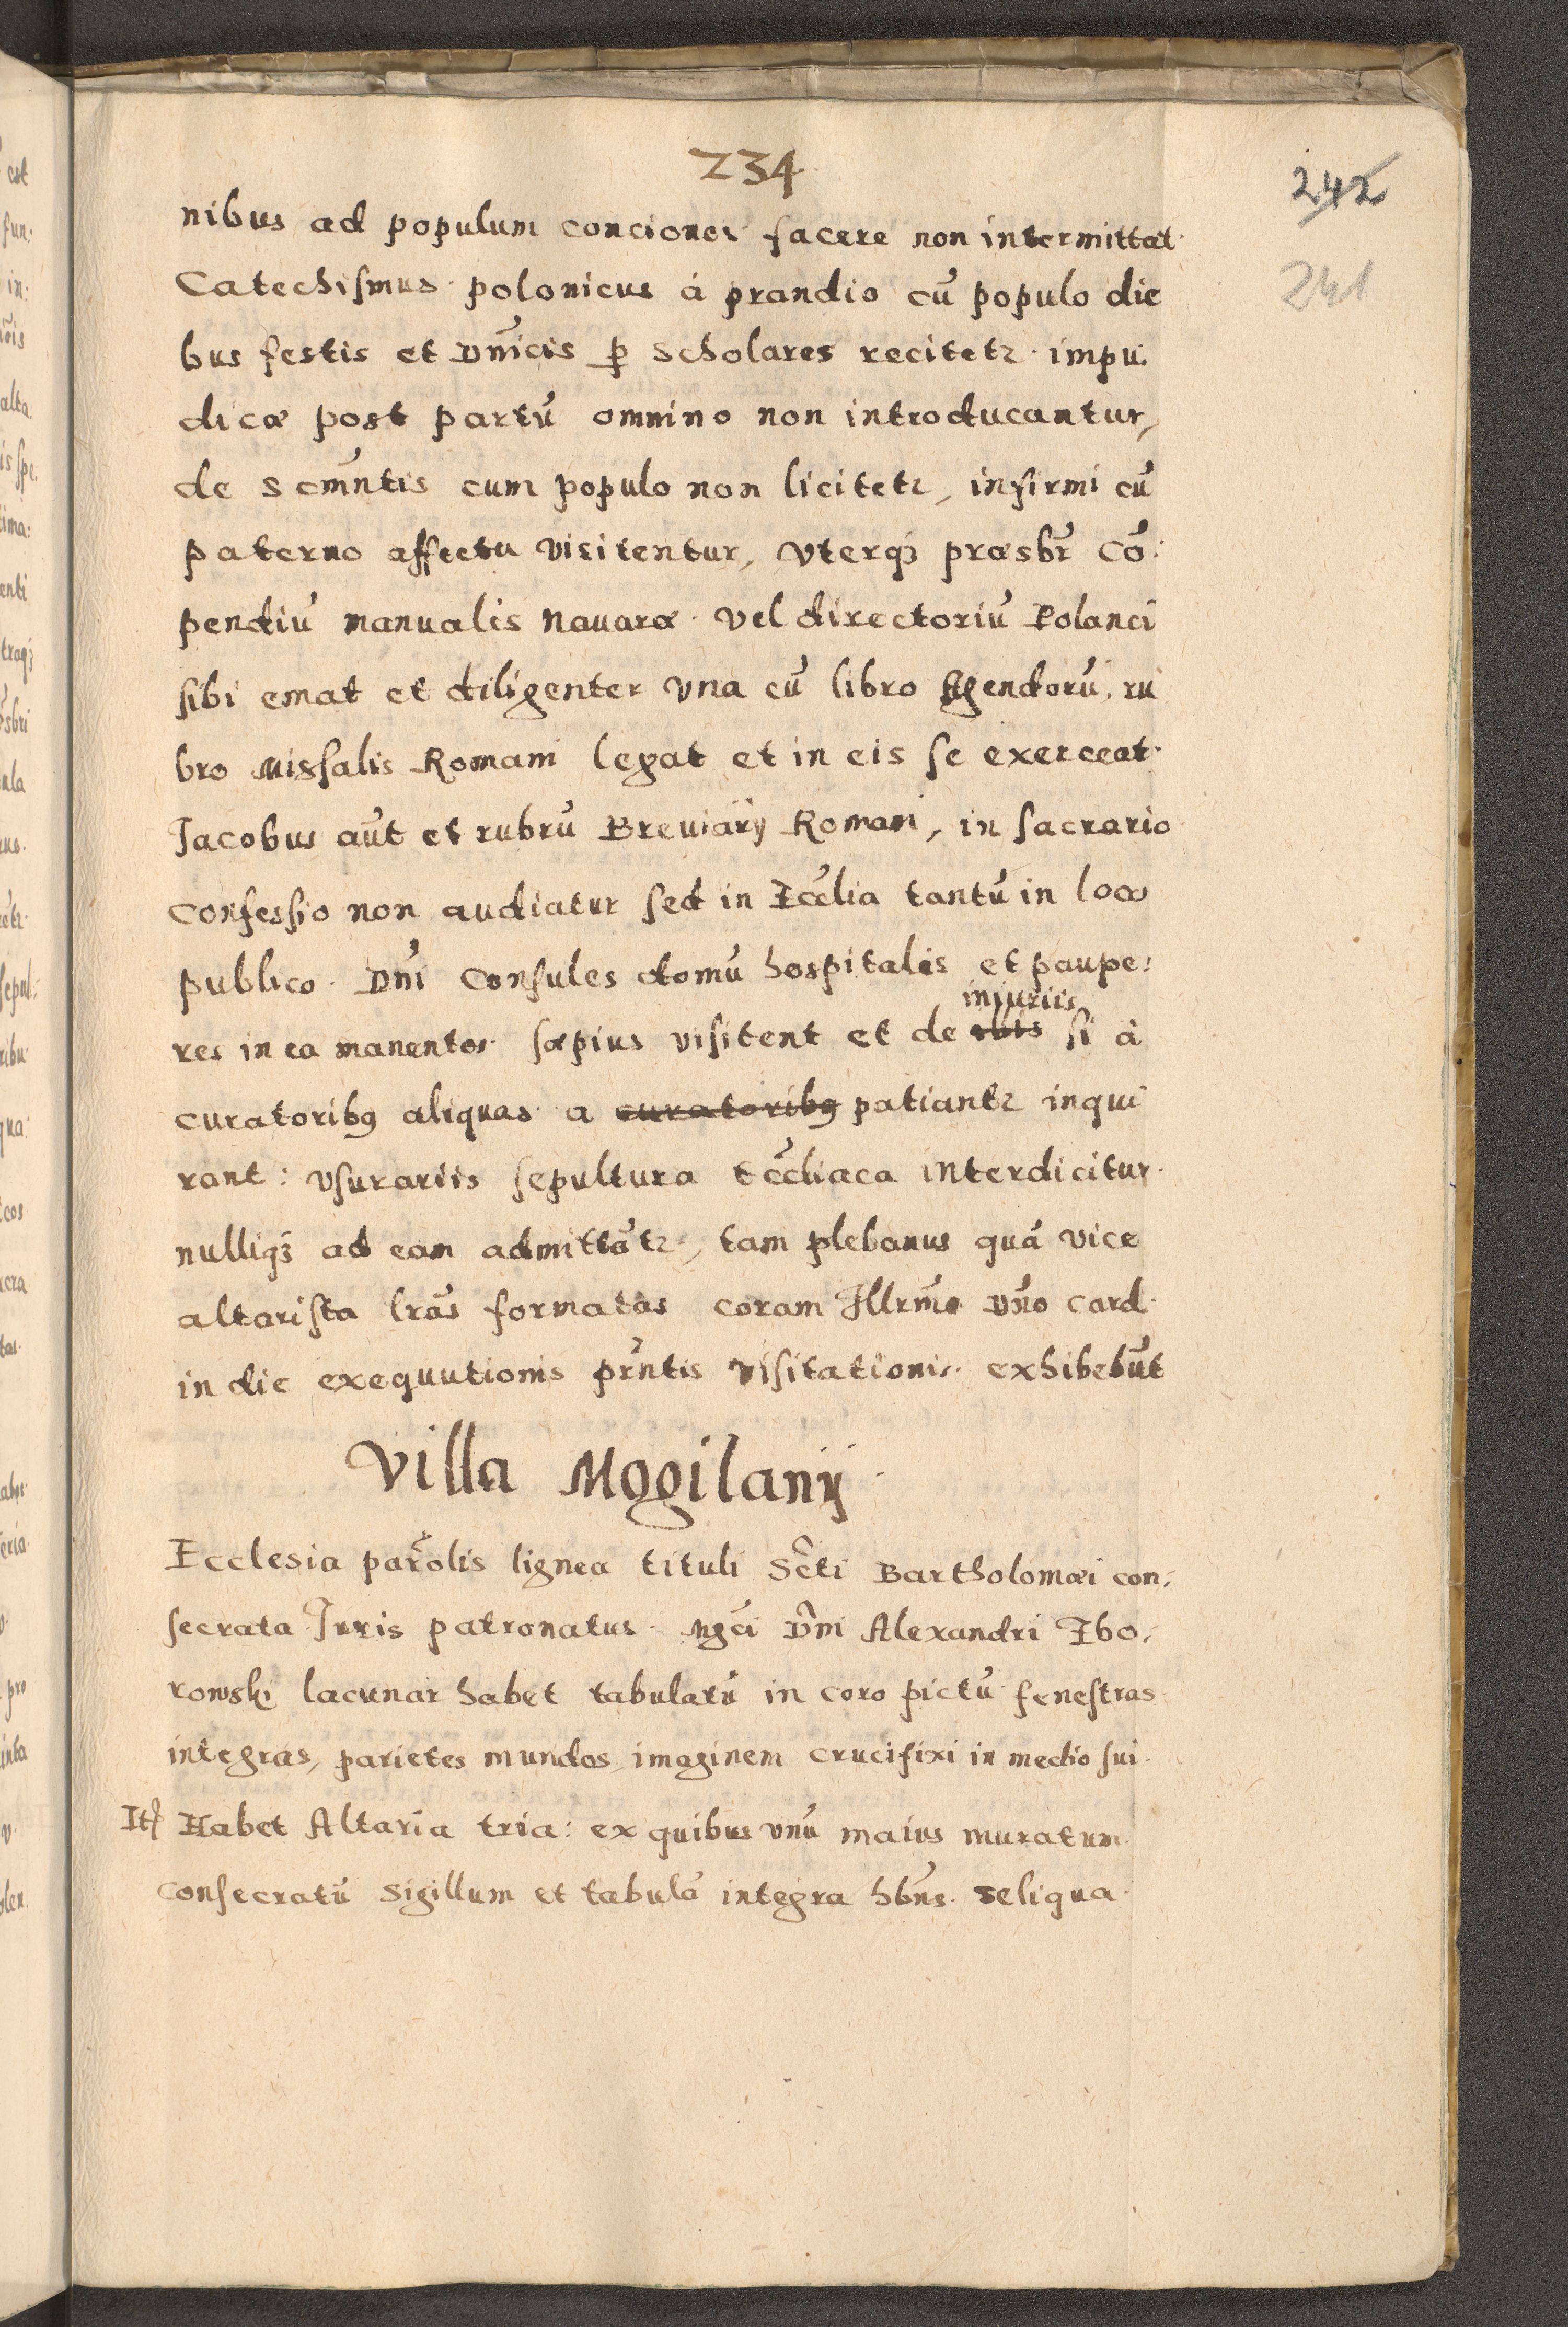 234
242
241
nibus ad populum conciones facere non intermittat.
Catechismus polonicus à prandio cū populo die
bus festis et Dn̄icis ꝑ scholares recitetr impu.
dicæ post partū omnino non introducantur,
de scm̄ntis cum populo non licitetr, infirmi cū
paterno affectu visitentur, vterqꝫ præsbr̄ Cō:
pendiū manualis Nauaræ vel directoriū Polanci
sibi emat et diligenter vna cū libro Agendorū. ru
bro Missalis Romani legat et in eis se exerceat.
Jacobus aūt et rubrū Breviarÿ Romani, in sacrario
confessio non audiatur sed in Ecc̄lia tantū in loco
publico. Dn̄i Consules domū hospitalis et paupe:
injuriis
res in ea manentes sæpius visitent et de si à
curatoribꝯ aliquas a curatoribꝯ patiantr inqui
rant: vsurariis sepultura ecc̄liaca interdicitur.
nulliqꝫ ad eam admittātr, tam plebanus quā vice
altarista lrās formatas coram Illrmo Dn̄o Card.
in die exequutionis prn̄tis visitationis exhibebūt
Villa Mogilanÿ
Ecclesia parōlis lignea tituli Scti Bartholomæi con:
secrata Juris patronatus Mgci Dn̄i Alexandri Zbo:
rowski lacunar habet tabulatū in coro pictū fenestras
integras, parietes mundos imaginem crucifixi in medio sui.
Itꝫ Habet Altaria tria: ex quibus vnū maius muratum
consecratū sigillum et tabulā integra hbn̄s. Reliqua